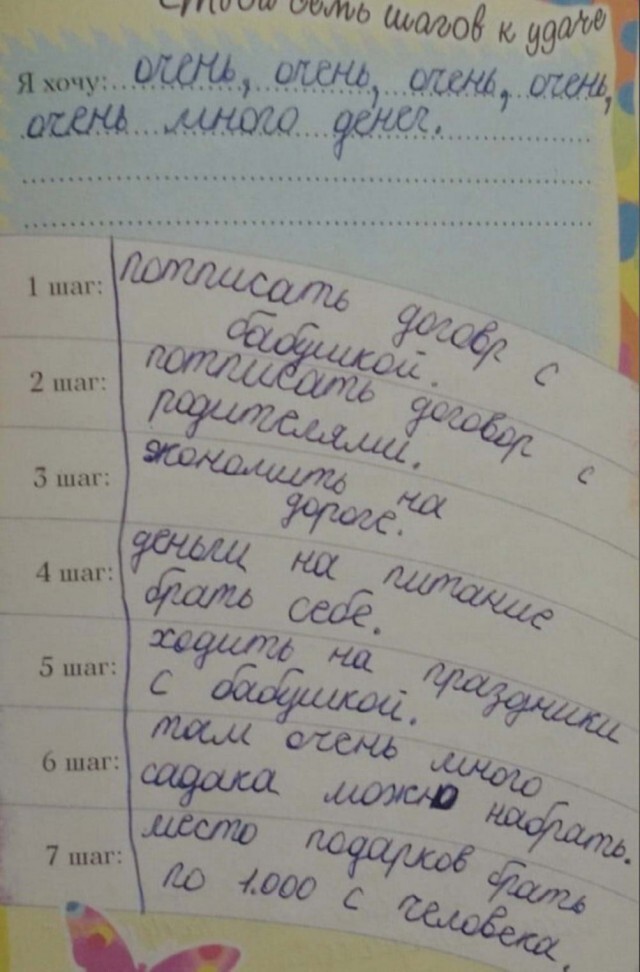 семь шагов к удаче
Я хочу: очень, очень, очень, очень,
очень много денег.
1 шаг: потписать договр с
бабушкой.
2 шаг: потписать договор с
родителями.
3 шаг: экономить на
дороге.
4 шаг: деньги на питание
брать себе.
5 шаг: ходить на праздники
с бабушкой.
6 шаг: там очень много
садака можно набрать.
7 шаг: место подарков брать
по 1.000 с человека.